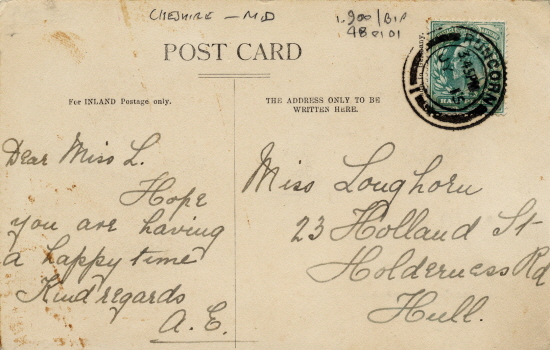 CHESHIRE - MID
1.900/BIP
480101
POST CARD
For INLAND Postage only.
THE ADDRESS ONLY TO BE
WRITTEN HERE.
RUNCORN
Dear Miss L.
Hope
you are having
a happy time
Kind regards
A.E.
Miss Longhorn
23 Holland St
Holderness Rd
Hull.